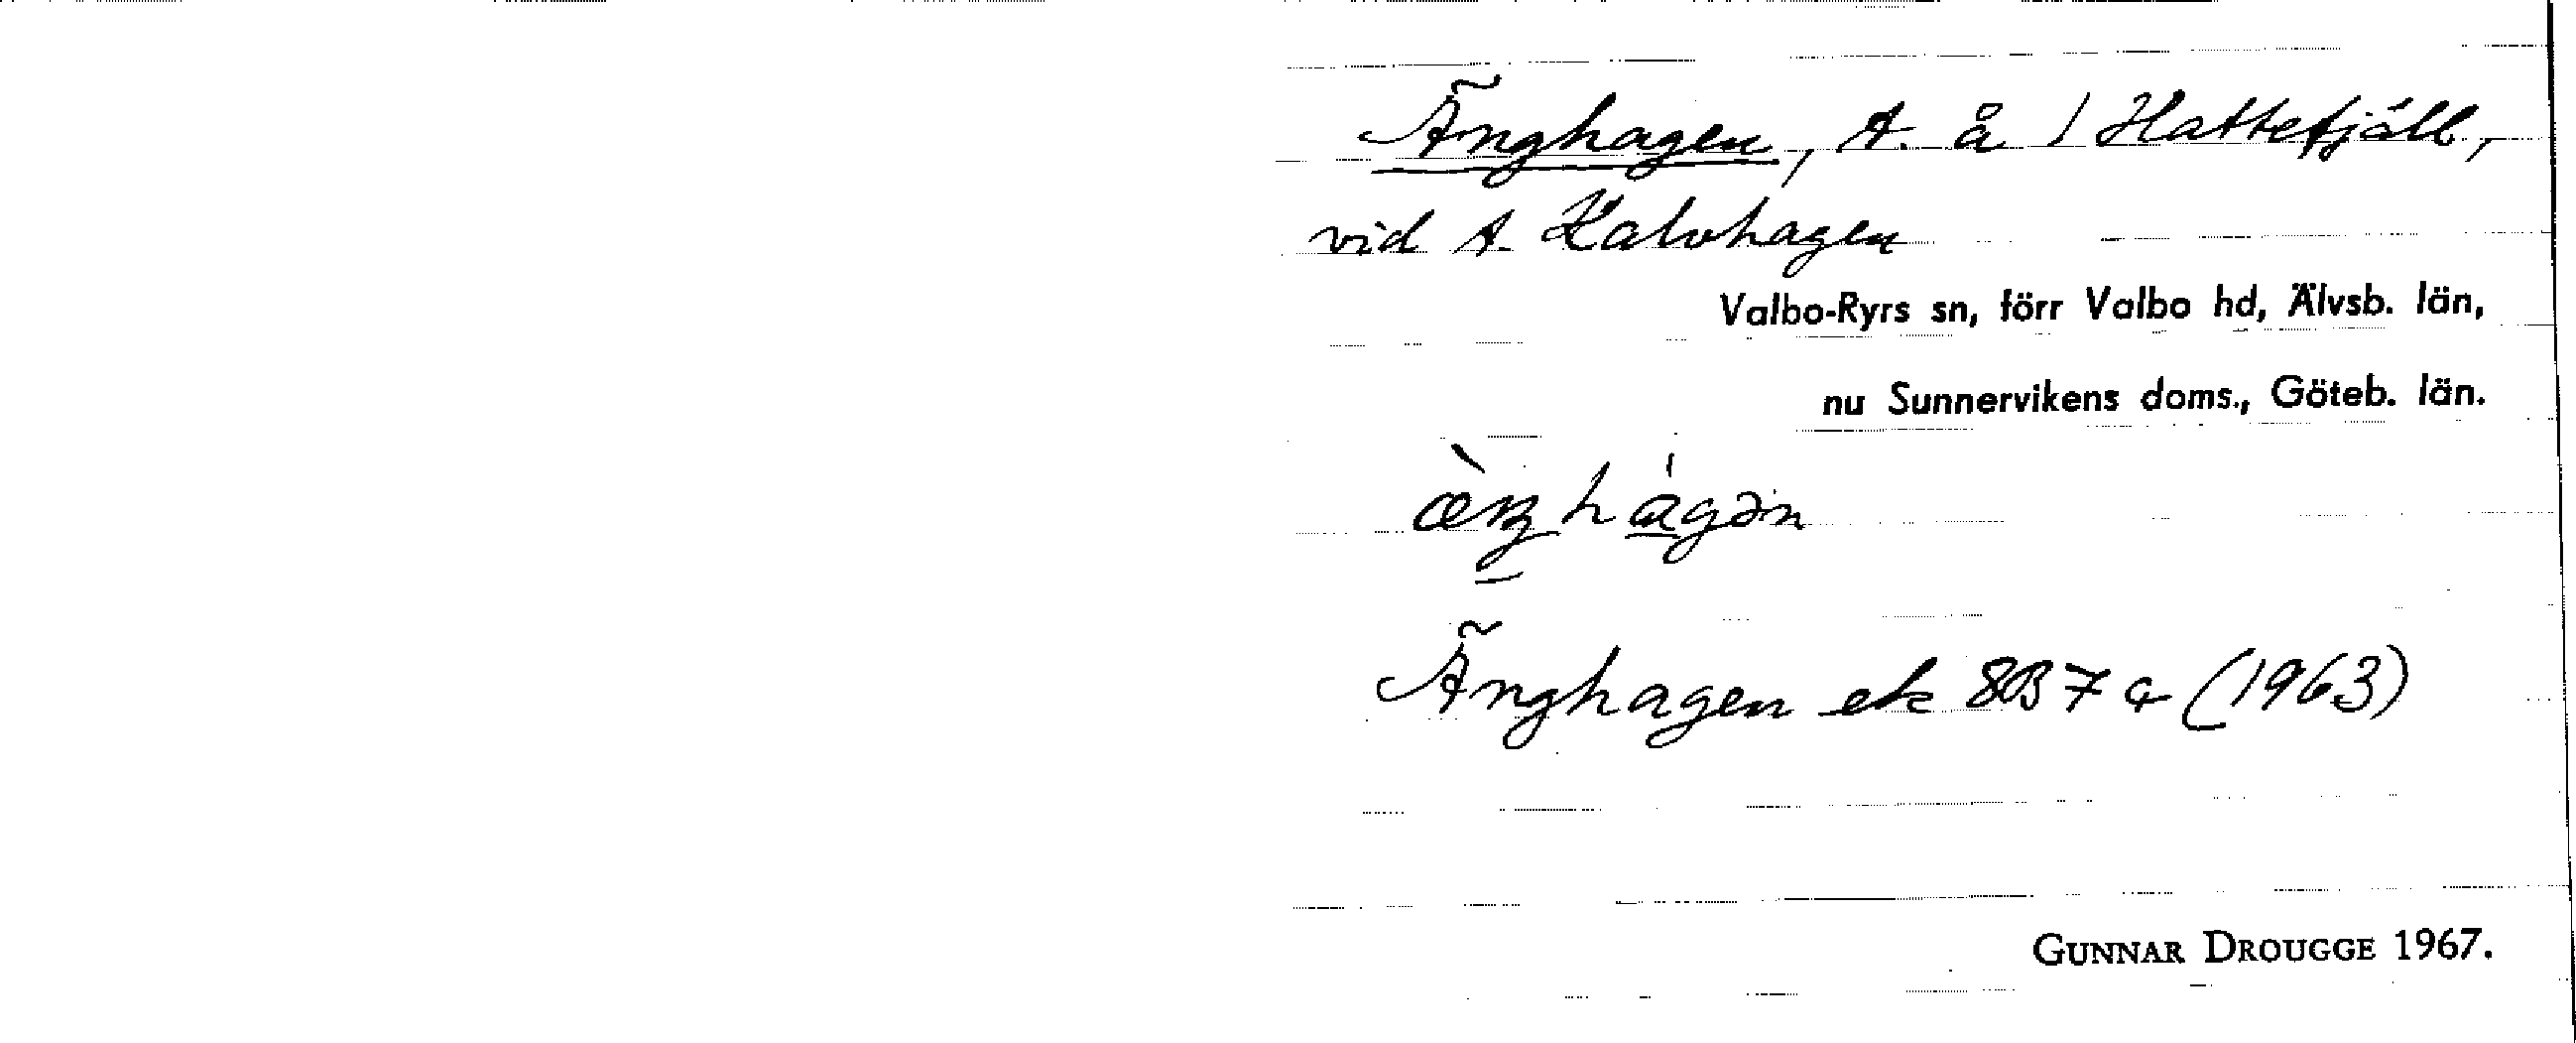 Änghagen, t. å 1 Hattefjäll,
vid t. Kalvhagen
Valbo-Ryrs sn, förr Valbo hd, Älvsb. län,
nu Sunnervikens doms., Göteb. län.
Änghagen ek 8B7a (1963)
GUNNAR DROUGGE 1967.